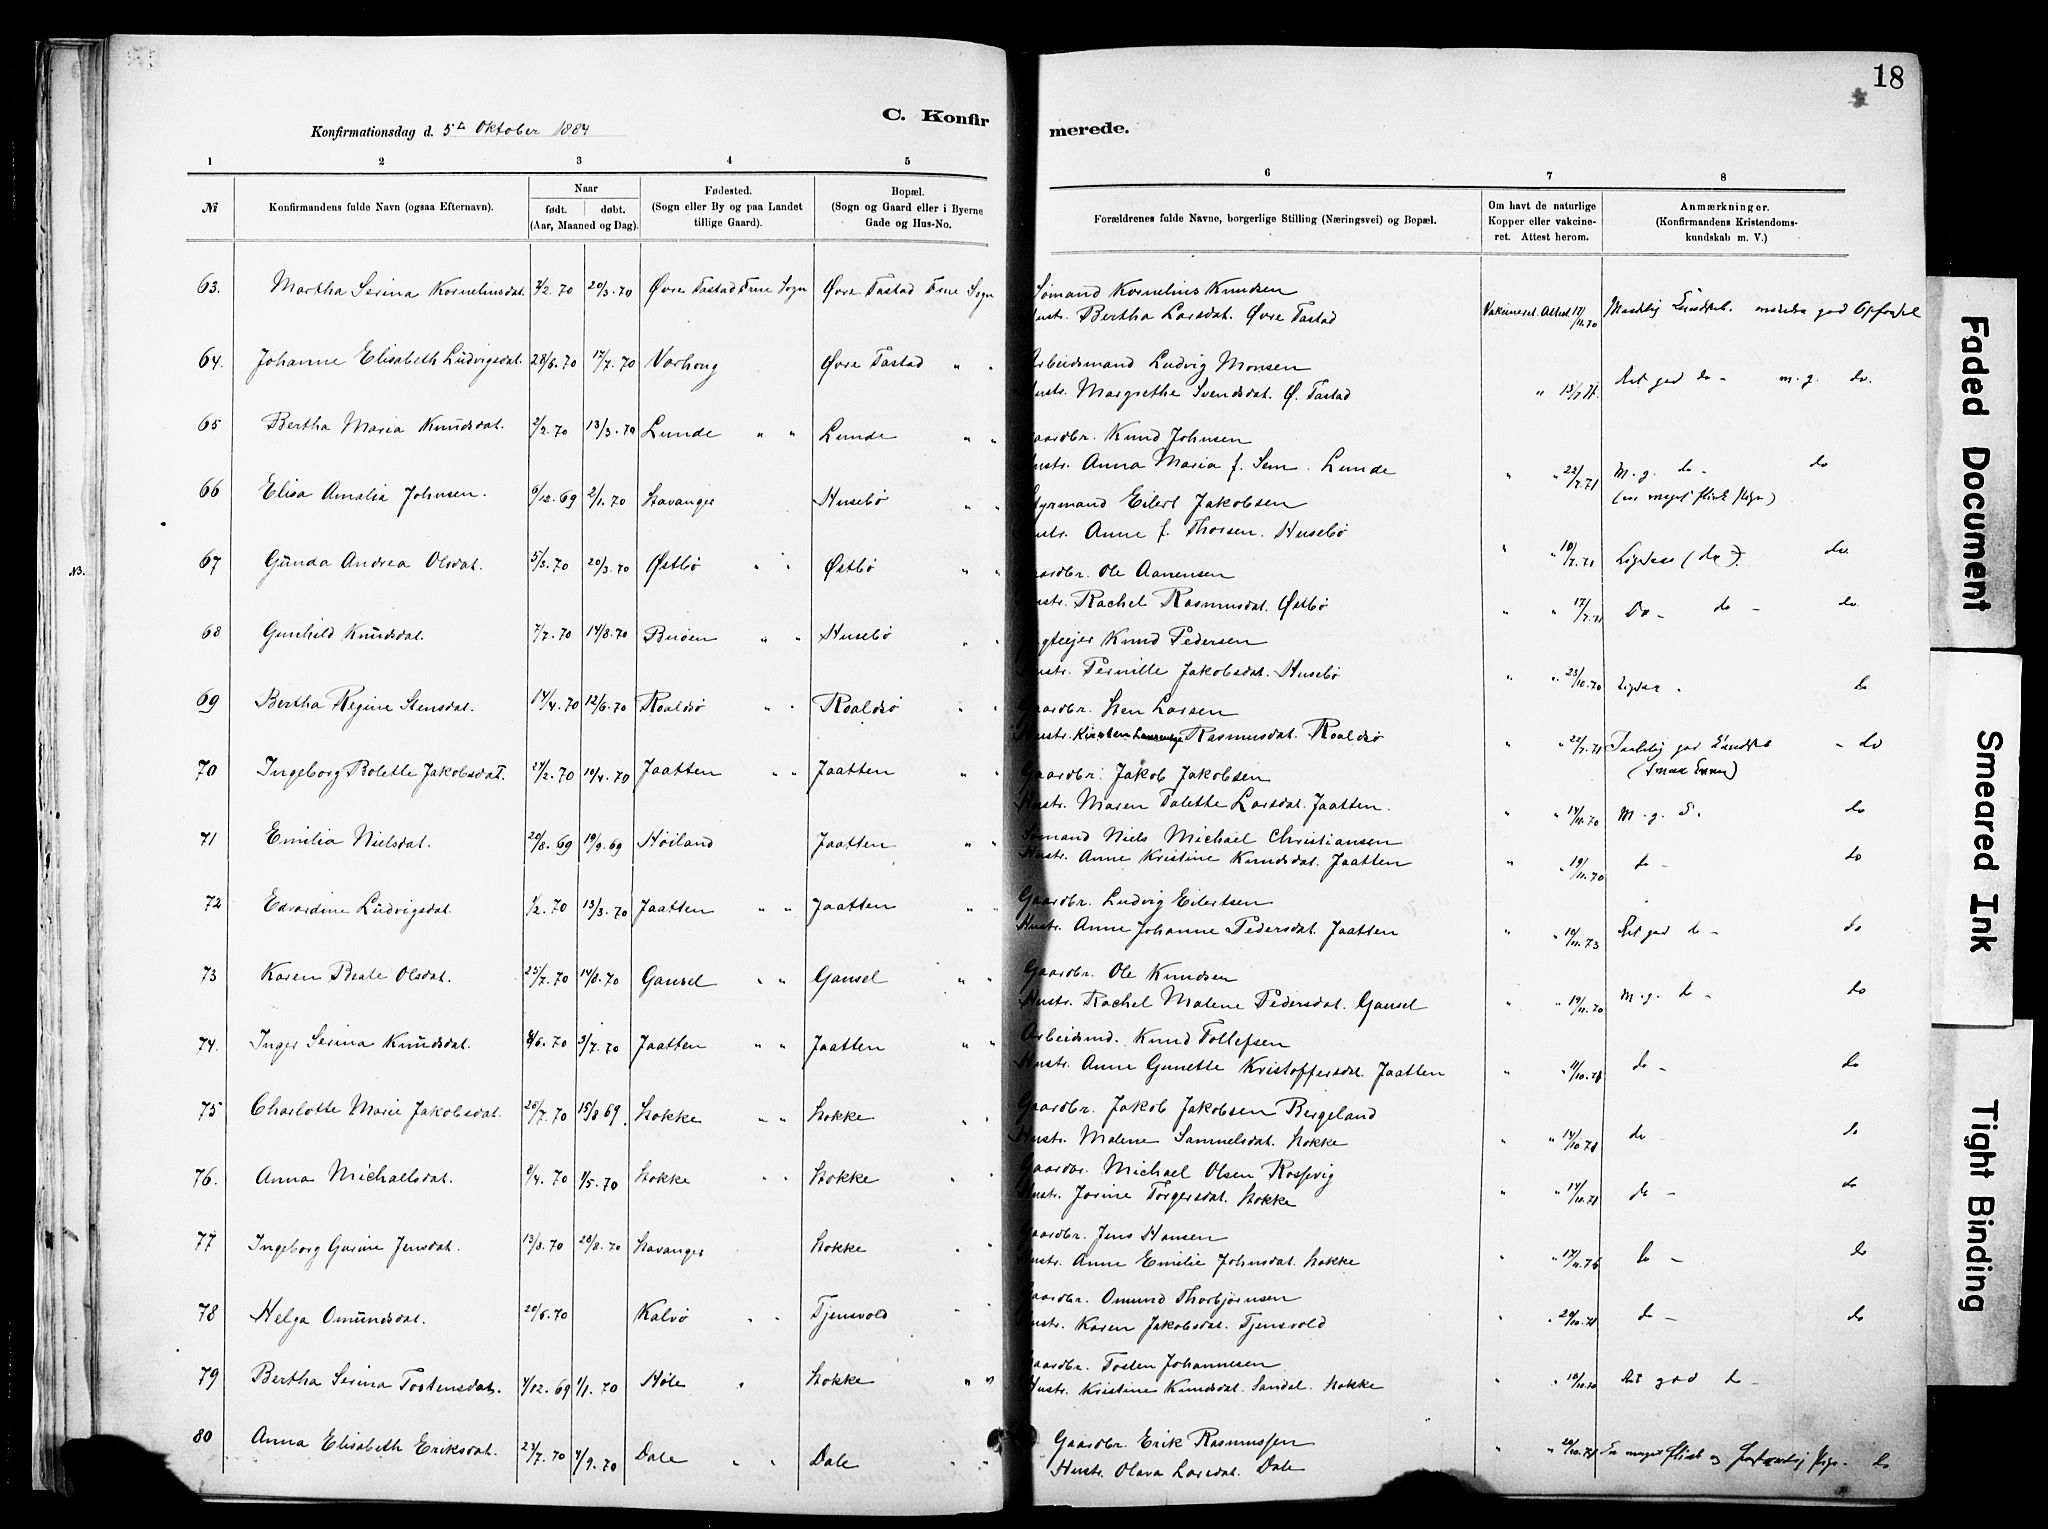 18
C. Konfirmerede.
Konfirmationsdag d. 5te Oktober 1884
1 2 3 4 5 6 7 8
№ Konfirmandens fulde Navn (ogsaa Efternavn). Naar født. døbt. (Aar, Maaned og Dag). Fødested. (Sogn eller By og paa Landet tillige Gaard). Bopæl. (Sogn og Gaard eller i Byerne Gade og Hus-No. Forældrenes fulde Navne, borgerlige Stilling (Næringsvei) og Bopæl. Om havt de naturlige Kopper eller vakcineret. Attest herom. Anmærkninger. (Konfirmandens Kristendomskundskab m. V.)
63. Martha Serina Kornelinsdat. 7/2. 70 20/3. 70 Øvre Tastad Frue Sogn Øvre Tastad Frue Sogn Sømand Kornelius Knudsen
Hustr. Bertha Larsdat. Øvre Tastad Vakcineret Attest 17/11.70
64. Johanne Elisabeth Ludvigsdat. 28/6. 70 17/7. 70 Varhoug Øvre Tastad " " Arbeidsmand Ludvig Monsen
Hustr. Margrethe Svendsdat. Ø. Tastad " 13/7 71. Ret god do - m. g. do.
65 Bertha Maria Knudsdat. 2/2. 70 13/3. 70 Lunde " " Lunde " " Gaardbr. Knud Johnsen
Hustr. Anna Maria f. Sem. Lunde " " 22/7.71 M. g. do - do
66 Elisa Amalia Johnsen. 6/12. 69 2/1. 70 Stavanger Husebø " " Styrmand Eilert Jakobsen
Hustr. Anne f. Thorsen. Husebø
67 Gunda Andrea Olsdat. 5/3. 70 20/3. 70 Østbø " " Østbø " " Gaardbr. Ole Aanensen
Hustr. Rachel Rasmusdat. Østbø " " 17/7.71 Do - do - do.
68 Gunhild Knudsdat. 7/7. 70 14/8. 70 Buøen " " Husebø " " Knud Pedersen
Hustr. Pernille Jakobsdat. Husebø " " 23/10.70
69 Bertha Regine Stensdat. 14/4. 70 12/6. 70 Roaldsø " " Roaldsø " " Gaardbr. Sten Larsen
Hustr. Kirsten Rasmusdat. Roaldsø " " 22/7.71 - do
70 Ingeborg Bolette Jakobsdat. 27/2. 70 10/4. 70 Jaatten " " Jaatten " " Gaardbr. Jakob Jakobsen
Hustr. Maren Talette Larsdat. Jaatten. " " 14/11.70 M. g. do
71 Emilia Nielsdat. 20/8. 69 19/9. 69 Høiland Jaatten " " Sømand Niels Michael Christiansen
Hustr. Anne Kristine Knudsdat. Jaatten " " 19/11.70 do - do
72 Edvardine Ludvigsdat. 1/2. 70 13/3. 70 Jaatten " " Jaatten " " Gaardbr. Ludvig Eilertsen
Hustr. Anne Johanne Pedersdat. Jaatten " " 10/11.73 Ret god do - do
73 Karen Beate Olsdat. 23/7. 70 14/8. 70 Gausel " " Gausel " " Gaardbr. Ole Knudsen
Hustr. Rachel Malene Pedersdat. Gausel " " 19/11.70 M. g. do - do
74. Inger Serina Knudsdat. 8/6. 70 3/7. 70 Jaatten " " Jaatten " " Arbeidsmd. Knud Tollefsen
Hustr. Anne Gunette Kristoffersdat. Jaatten " " 11/10.71 do - do
75 Charlotte Marie Jakobsdat. 20/7. 70 15/8 69 Stokke " " Stokke " Gaardbr. Jakob Jakobsen Bergeland
Hustr. Malene Samuelsdat. Stokke " " 14/10.71 do - do
76. Anna Michaelsdat. 8/4. 70 1/5. 70 Stokke " " Stokke " " Gaardbr. Michael Olsen Rossevig
Hustr. Jorine Torgersdat. Stokke " " 14/10.71 do - do
77 Ingeborg Gurine Jensdat. 13/8. 70 20/8. 70 Stavanger Stokke " " Gaardbr. Jens Hansen
Hustr. Anne Emilie Johnsdat. Stokke " 17/11.76 do - do
78 Helga Omundsdat. 20/6. 70 Kalvø " " Tjensvold " " Gaardbr. Omund Thorbjørnsen
Hustr. Karen Jakobsdat. Tjensvold " " 20/10.71 do - do
79 Bertha Serina Tostensdat. 4/12. 69 1/1. 70 Høle " Stokke " " Gaardbr. Tosten Johannesen
Hustr. Kristine Knudsdat. Sandal. Stokke " " 10/10.70 Ret god do -
80 Anna Elisabeth Eriksdat. 23/7. 70 4/9. 70 Dale " " Dale " " Gaardbr. Erik Rasmussen
Hustr. Olava Larsdat. Dale " " 20/10.71 En meget flink og Pige. do
N3.
Faded Document
Smeared Ink
Tight Binding